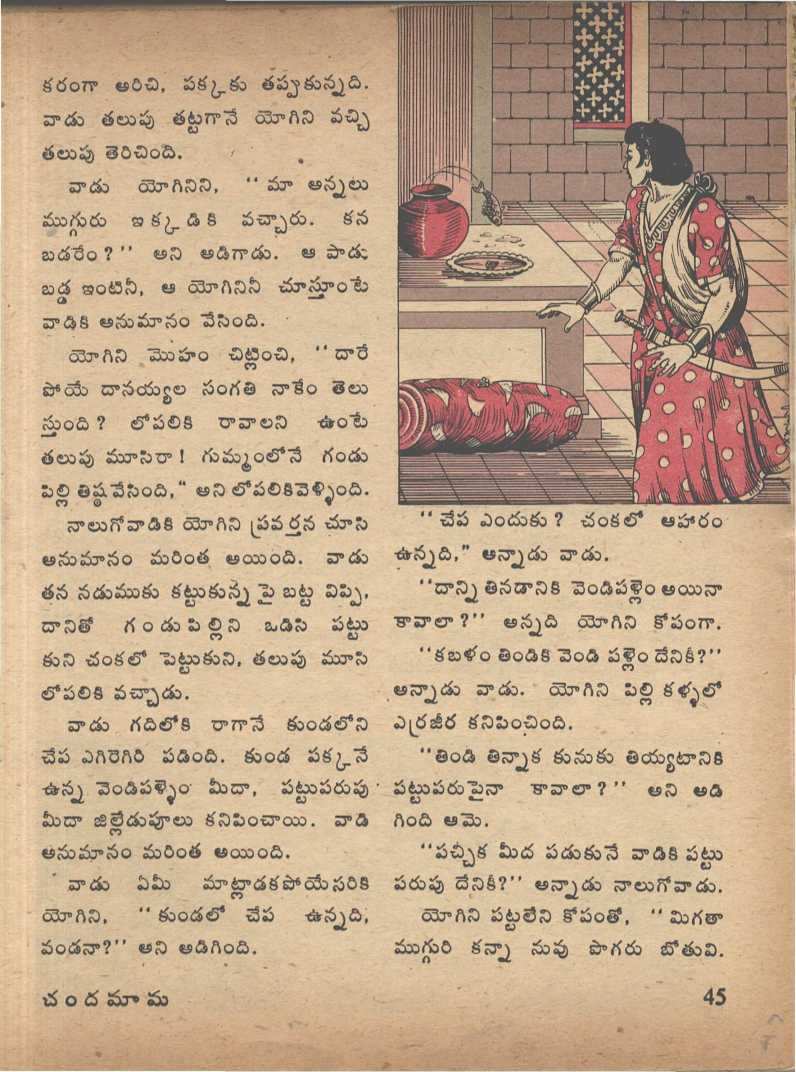 కరంగా అరిచి, పక్కకు తప్పుకున్నది.
వాడు తలుపు తట్టగానే యోగిని వచ్చి
తలుపు తెరిచింది.
వాడు యోగినిని, ‘‘మా అన్నలు
ముగ్గురు ఇక్కడికి వచ్చారు. కన
బడరేం?’’ అని అడిగాడు. ఆ పాడు
బడ్డ ఇంటినీ, ఆ యోగినినీ చూస్తూంటే
వాడికి అనుమానం వేసింది.
యోగిని మొహం చిట్లించి, ‘‘దారే
పోయే దానయ్యల సంగతి నాకేం తెలు
స్తుంది? లోపలికి రావాలని ఉంటే
తలుపు మూసిరా! గుమ్మంలోనే గండు
పిల్లి తిష్ఠవేసింది,’’ అని లోపలికివెళ్ళింది.
నాలుగోవాడికి యోగిని ప్రవర్తన చూసి
అనుమానం మరింత అయింది. వాడు
తన నడుముకు కట్టుకున్న పై బట్ట విప్పి,
దానితో గండుపిల్లిని ఒడిసి పట్టు
కుని చంకలో పెట్టుకుని, తలుపు మూసి
లోపలికి వచ్చాడు.
వాడు గదిలోకి రాగానే కుండలోని
చేప ఎగిరెగిరి పడింది. కుండ పక్కనే
ఉన్న వెండిపళ్ళెం మీదా, పట్టుపరుపు
మీదా జిల్లేడుపూలు కనిపించాయి. వాడి
అనుమానం మరింత అయింది.
వాడు ఏమీ మాట్లాడకపోయేసరికి
యోగిని, ‘‘కుండలో చేప ఉన్నది,
వండనా?’’ అని అడిగింది.
‘‘చేప ఎందుకు? చంకలో ఆహారం
ఉన్నది,’’ అన్నాడు వాడు.
‘‘దాన్ని తినడానికి వెండిపళ్లెం అయినా
కావాలా?’’ అన్నది యోగిని కోపంగా.
‘‘కబళం తిండికి వెండి పళ్లెం దేనికీ?’’
అన్నాడు వాడు. యోగిని పిల్లి కళ్ళలో
ఎర్రజీర కనిపించింది.
‘‘తిండి తిన్నాక కునుకు తియ్యటానికి
పట్టుపరుపైనా కావాలా?’’ అని అడి
గింది ఆమె.
‘‘పచ్చిక మీద పడుకునే వాడికి పట్టు
పరుపు దేనికీ?’’ అన్నాడు నాలుగోవాడు.
యోగిని పట్టలేని కోపంతో, ‘‘మిగతా
ముగ్గురి కన్నా నువు పొగరు బోతువి.
చందమామ
45